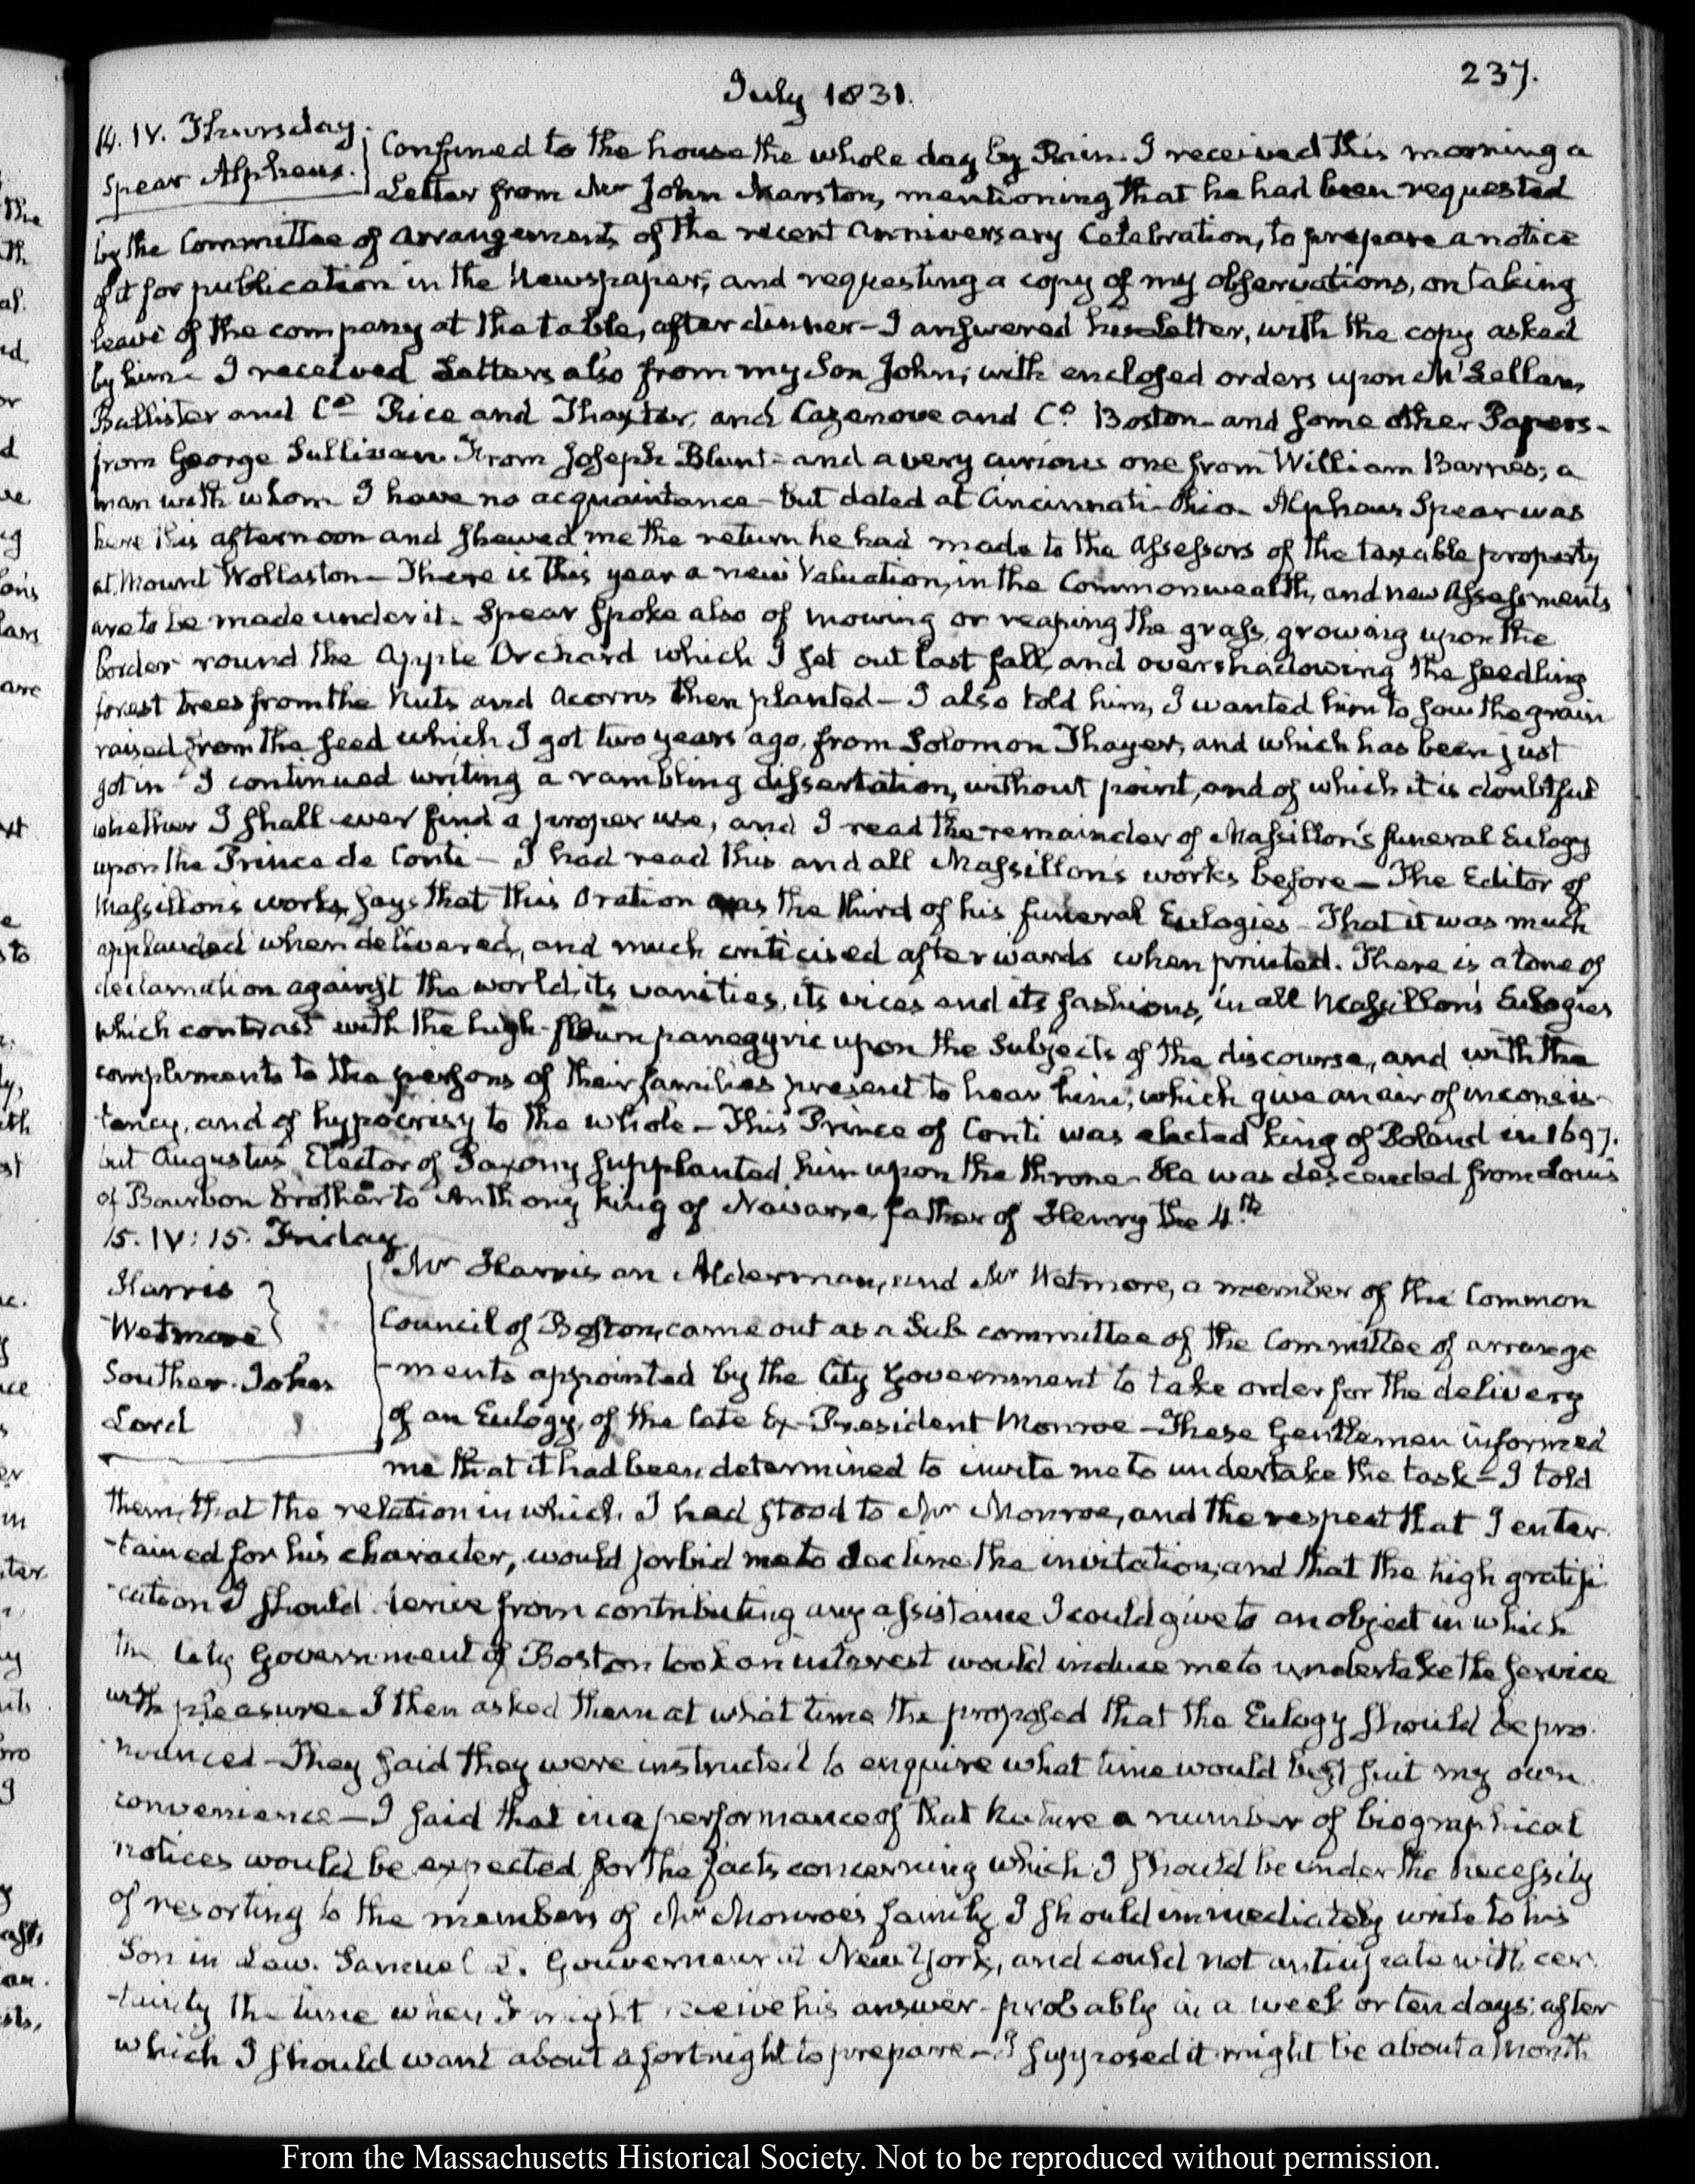 237.
July 1831.
14. IV. Thursday.
Spear Alpheus.
Confined to the house the whole day by Rain. I received this morning a
Letter from Mr John Marston, mentioning that he had been requested
by the Committee of arrangements of the recent Anniversary Celebration, to prepare a notice
of it for publication in the Newspaper; and requesting a copy of my observations, on taking
leave of the company at the table, after dinner – I answered his Letter, with the copy asked
by him – I received Letters also from my Son John; with enclosed orders upon M'Lellan,
Ballister and Co. Rice and Thaxter, and Cazenove and Co. Boston – and some other Papers –
from George Sullivan From Joseph Blunt – and a very curious one from William Barnes; a
man with whom I have no acquaintance – but dated at Cincinnati – Ohio – Alpheus Spear was
here this afternoon and shewed me the return he had made to the Assessors of the taxable property
at Mount Wollaston – There is this year a new Valuation, in the Commonwealth, and new Assessments
are to be made under it. Spear spoke also of mowing or reaping the grass, growing upon the
border round the Apple Orchard which I set out last fall, and overshadowing the seedling
forest trees from the Nuts and Acorns then planted – I also told him, I wanted him to sow the grain
raised from the seed which I got two years ago, from Solomon Thayer, and which has been just
got in – I continued writing a rambling dissertation, without point, and of which it is doubtful
whether I shall ever find a proper use, and I read the remainder of Massillon's funeral Eulogy
upon the Prince de Conti – I had read this and all Massillon's works before – The Editor of
Massillon's works, says that this Oration was the third of his funeral Eulogies – That it was much
applauded when delivered, and much criticised afterwards when printed. There is a tone of
declamation against the world, its vanities, its vices and its fashions, in all Massillon's Eulogies
which contrast with the high-flown panegyric upon the Subjects of the discourse, and with the
compliments to the persons of their families present to hear him, which give an air of inconsis-
tency, and of hypocrisy to the whole – This Prince of Conti was elected king of Poland in 1697.
but Augustus, Elector of Saxony supplanted him upon the throne – He was descended from Louis
of Bourbon brother to Anthony king of Navarre, father of Henry the 4th
15. IV: 15. Friday
Harris
Wetmore
Souther. John
Lord
Mr Harris an Alderman, and Mr Wetmore, a member of the Common
Council of Boston, came out as a Sub committee of the Committee of arrange
-ments appointed by the City Government to take order for the delivery
of an Eulogy, of the late Ex-President Monroe – These Gentlemen informed
me that it had been determined to invite me to undertake the task – I told
them, that the relation in which I had stood to Mr Monroe, and the respect that I enter
-tained for his character, would forbid me to decline the invitation; and that the high gratifi
-cation I should derive from contributing any assistance I could give to an object in which
the City Government of Boston took an interest would induce me to undertake the service
with pleasure – I then asked them at what time the proposed that the Eulogy should be pro
-nounced – They said they were instructed to enquire what time would best suit my own
convenience – I said that in a performance of that Nature a number of biographical
notices would be expected for the facts concerning which I should be under the necessity
of resorting to the members of Mr Monroe's family, I should immediately write to his
Son in Law. Samuel L. Gouverneur at New York, and could not anticipate with cer
-tainty the time when I might receive his answer – probably in a week or ten days; after
which I should want about a fortnight to prepare – I supposed it might be about a Month
From the Massachusetts Historical Society. Not to be reproduced without permission.